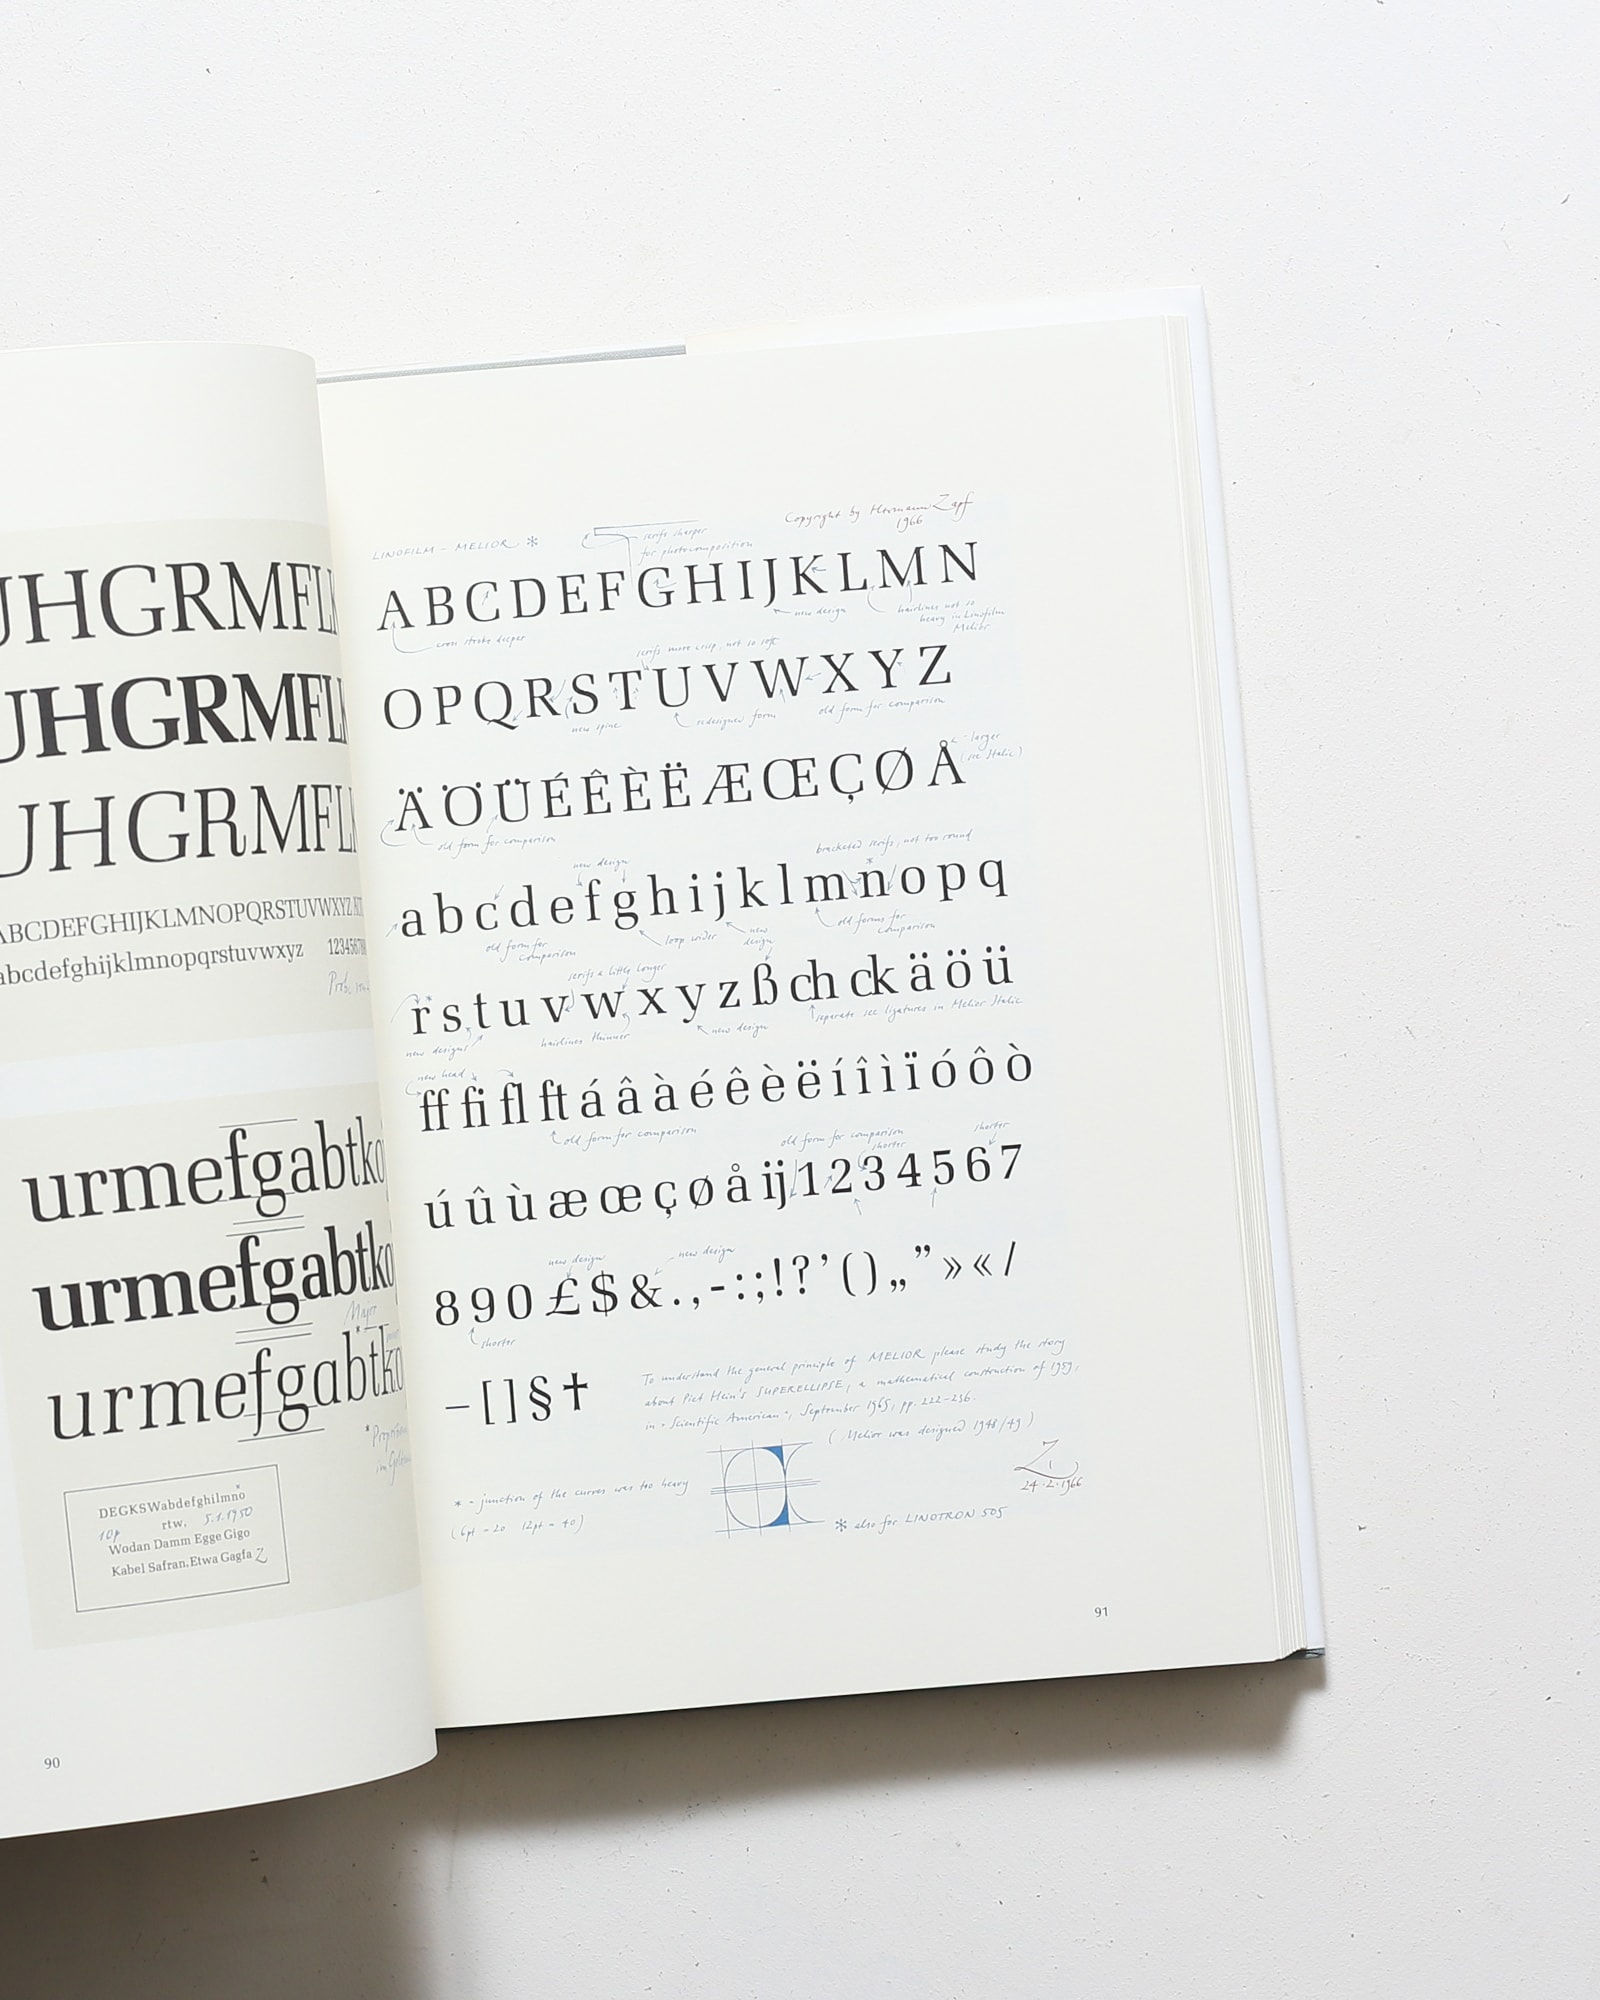 UHGRMFL
UHGRMFL
UHGRMFL
ABCDEFGHIJKLMNOPQRSTUVWXYZ
abcdefghijklmnopqrstuvwxyz 1234567
urmefgabtko
urmefgabtko
Major
urmefgabtko
DEGKSWabdefghilmno*
10p rtw. 5.1.1950
Wodan Damm Egge Gigo
Kabel Safran. Etwa Gagfa Z
90
Copyright by Hermann Zapf
1966
LINOFILM - MELIOR *
serifs sharper
for photocomposition
ABCDEFGHIJKLMN
cross stroke deeper
new design
hairlines not so
heavy in Linofilm
Melior
serifs more crisp, not so soft
OPQRSTUVWXYZ
new spine
redesigned form
old form for comparison
larger
(see Italic)
ÄÖÜÉÊÈËÆŒÇØÅ
old form for comparison
new design
bracketed serifs, not too round
abcdefghijklmnopq
old form for
comparison
loop wider
new
design
old forms for
comparison
serifs a little longer
rstuvwxyzßchckäöü
new designs
hairlines thinner
new design
separate see ligatures in Melior Italic
new head
ff fi fl ft á â à é ê è ë í î ì ï ó ô ò
old form for comparison
old form for comparison
shorter
shorter
ú û ù æ œ ç ø å ij 1 2 3 4 5 6 7
new design
new design
890£$&.,-:;!?’()„”»«/
shorter
–[]§†
To understand the general principle of MELIOR please study the story
about Piet Hein's SUPERELLIPSE, a mathematical construction of 1959,
in »Scientific American«, September 1965, pp. 222-236.
(Melior was designed 1948/49)
Z
24.2.1966
* = junction of the curves was too heavy
(6pt = 20 12pt = 40)
* also for LINOTRON 505
91